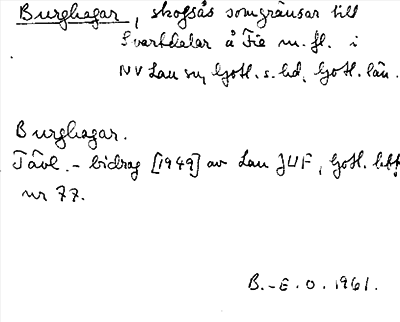 Burghagar, skogsås som gränsar till
Svarthelar å Fie m. fl. i
NV Lau sn, Gotl. s. hd, Gotl. län.
Burghagar.
Tävl. - bidrag [1949] av Lau JUF, Gotl.
nr 77.
B.-E. O. 1961.